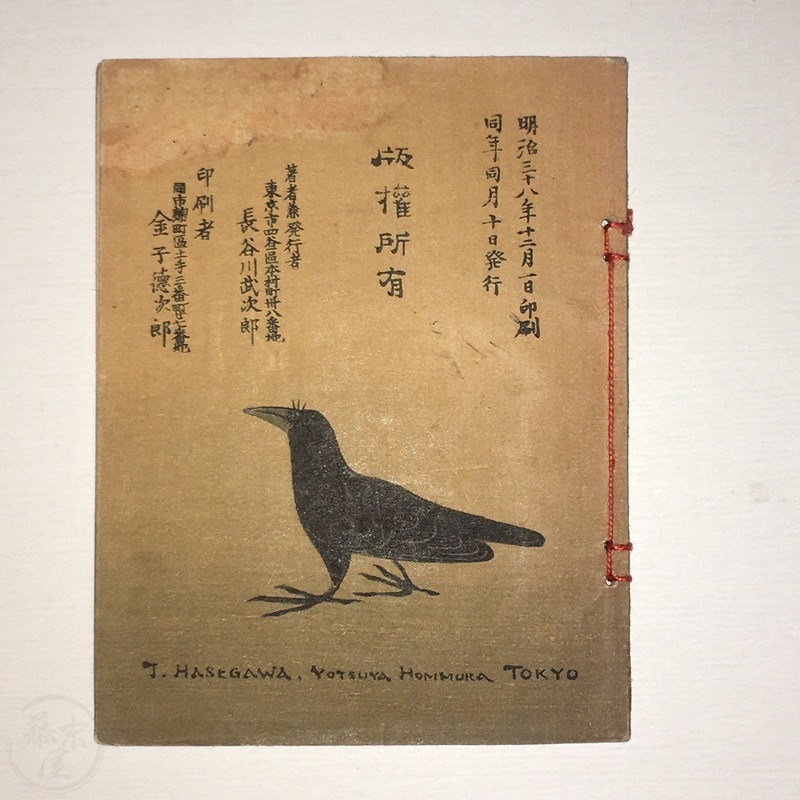 明治三十八年十二月一日印刷
同年同月十日発行
版權所有
著者兼発行者
東京市四谷區本村町卅八番地
長谷川武次郎
印刷者
同市麹町區土手三番町廿七番地
金子德次郎
T. HASEGAWA, YOTSUYA HOMMURA TOKYO
幕末屋